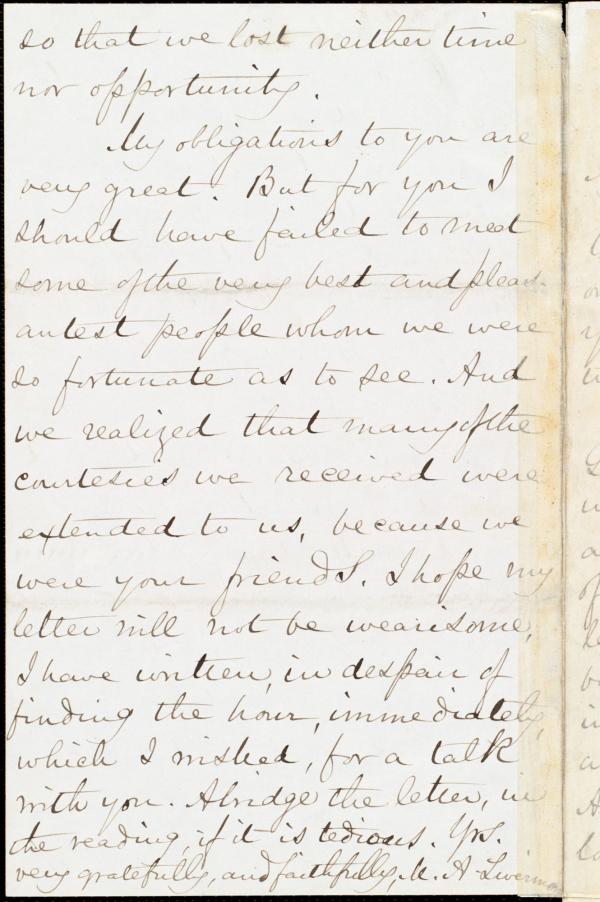 so that we lost neither time
nor opportunity.
My obligations to you are
very great. But for you I
should have failed to meet
some of the very best and pleas-
antest people whom we were
so fortunate as to see. And
we realized that many of the
courtesies we received were
extended to us, because we
were your friends. I hope my
letter will not be wearisome,
I have written, in despair of
finding the hour, immediately,
which I wished, for a talk
with you. Abridge the letter, in
the reading, if it is tedious. Yrs.
very gratefully, and faithfully, M. A. Livermore